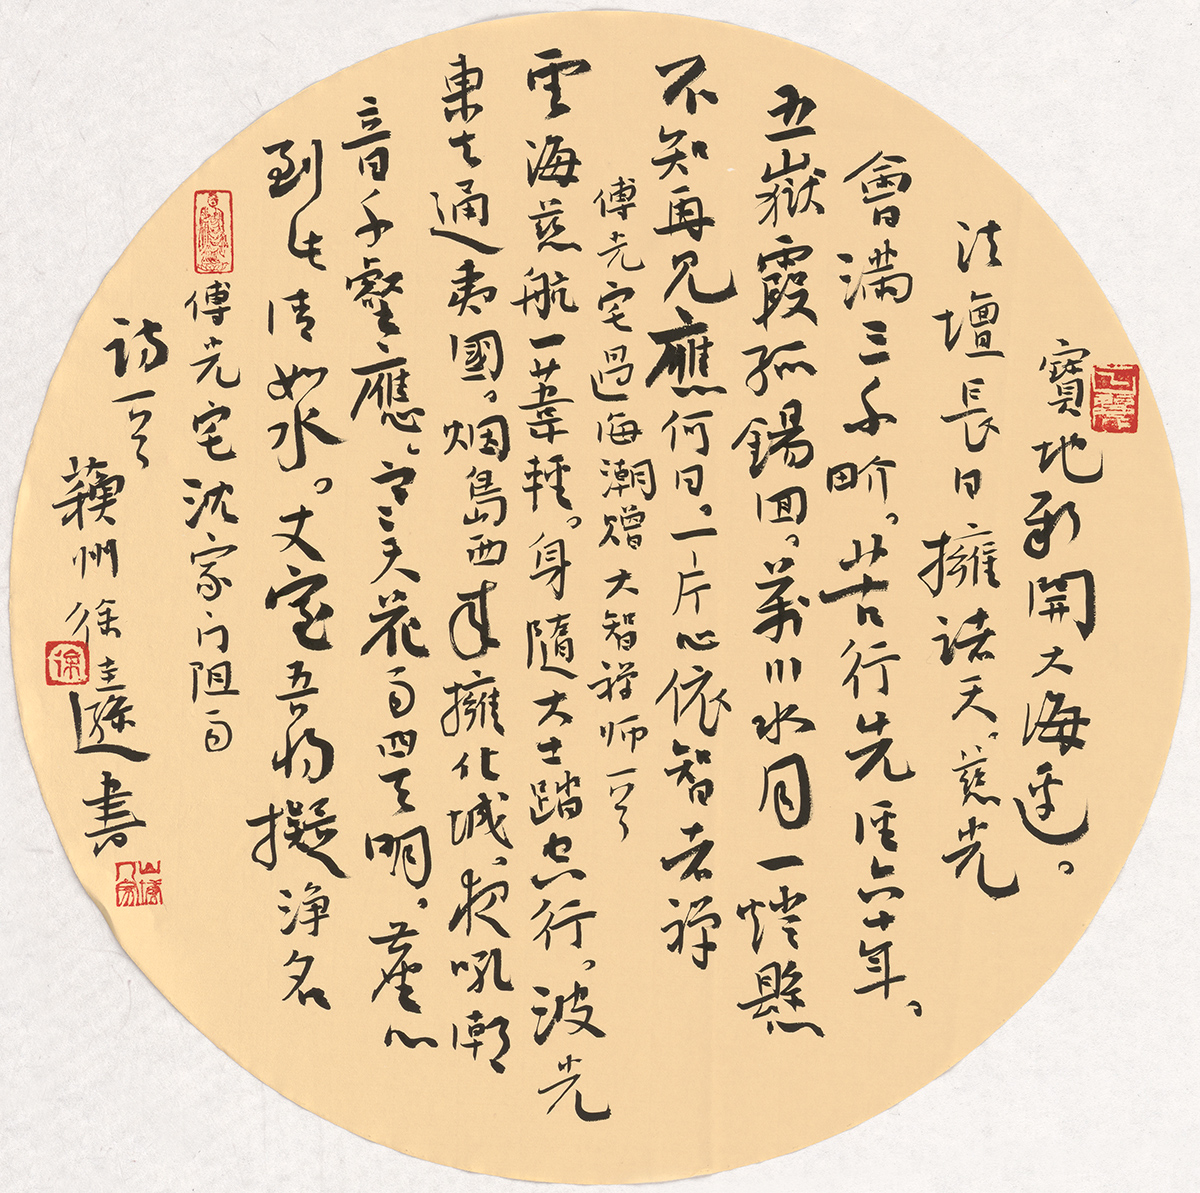 寶地新開大海邊。
法壇長日擁諸天。慈光
會滿三千畍。苦行先經六十年。
五嶽霞孤錫囬。萬川水月一燈懸
不知再見應何日。一片心依智者禪
傅光宅過海潮贈大智禪師一首
雲海慈航一葦輕。身隨大士踏空行。波光
東去通夷國。烟島西來擁化城。夜吼潮
音千壑應。天花雨四天明。塵心
到此清如水。丈室吾將擬淨名
傅光宅沈家门阻雨
詩一首
蘇州徐圭遜書
徐